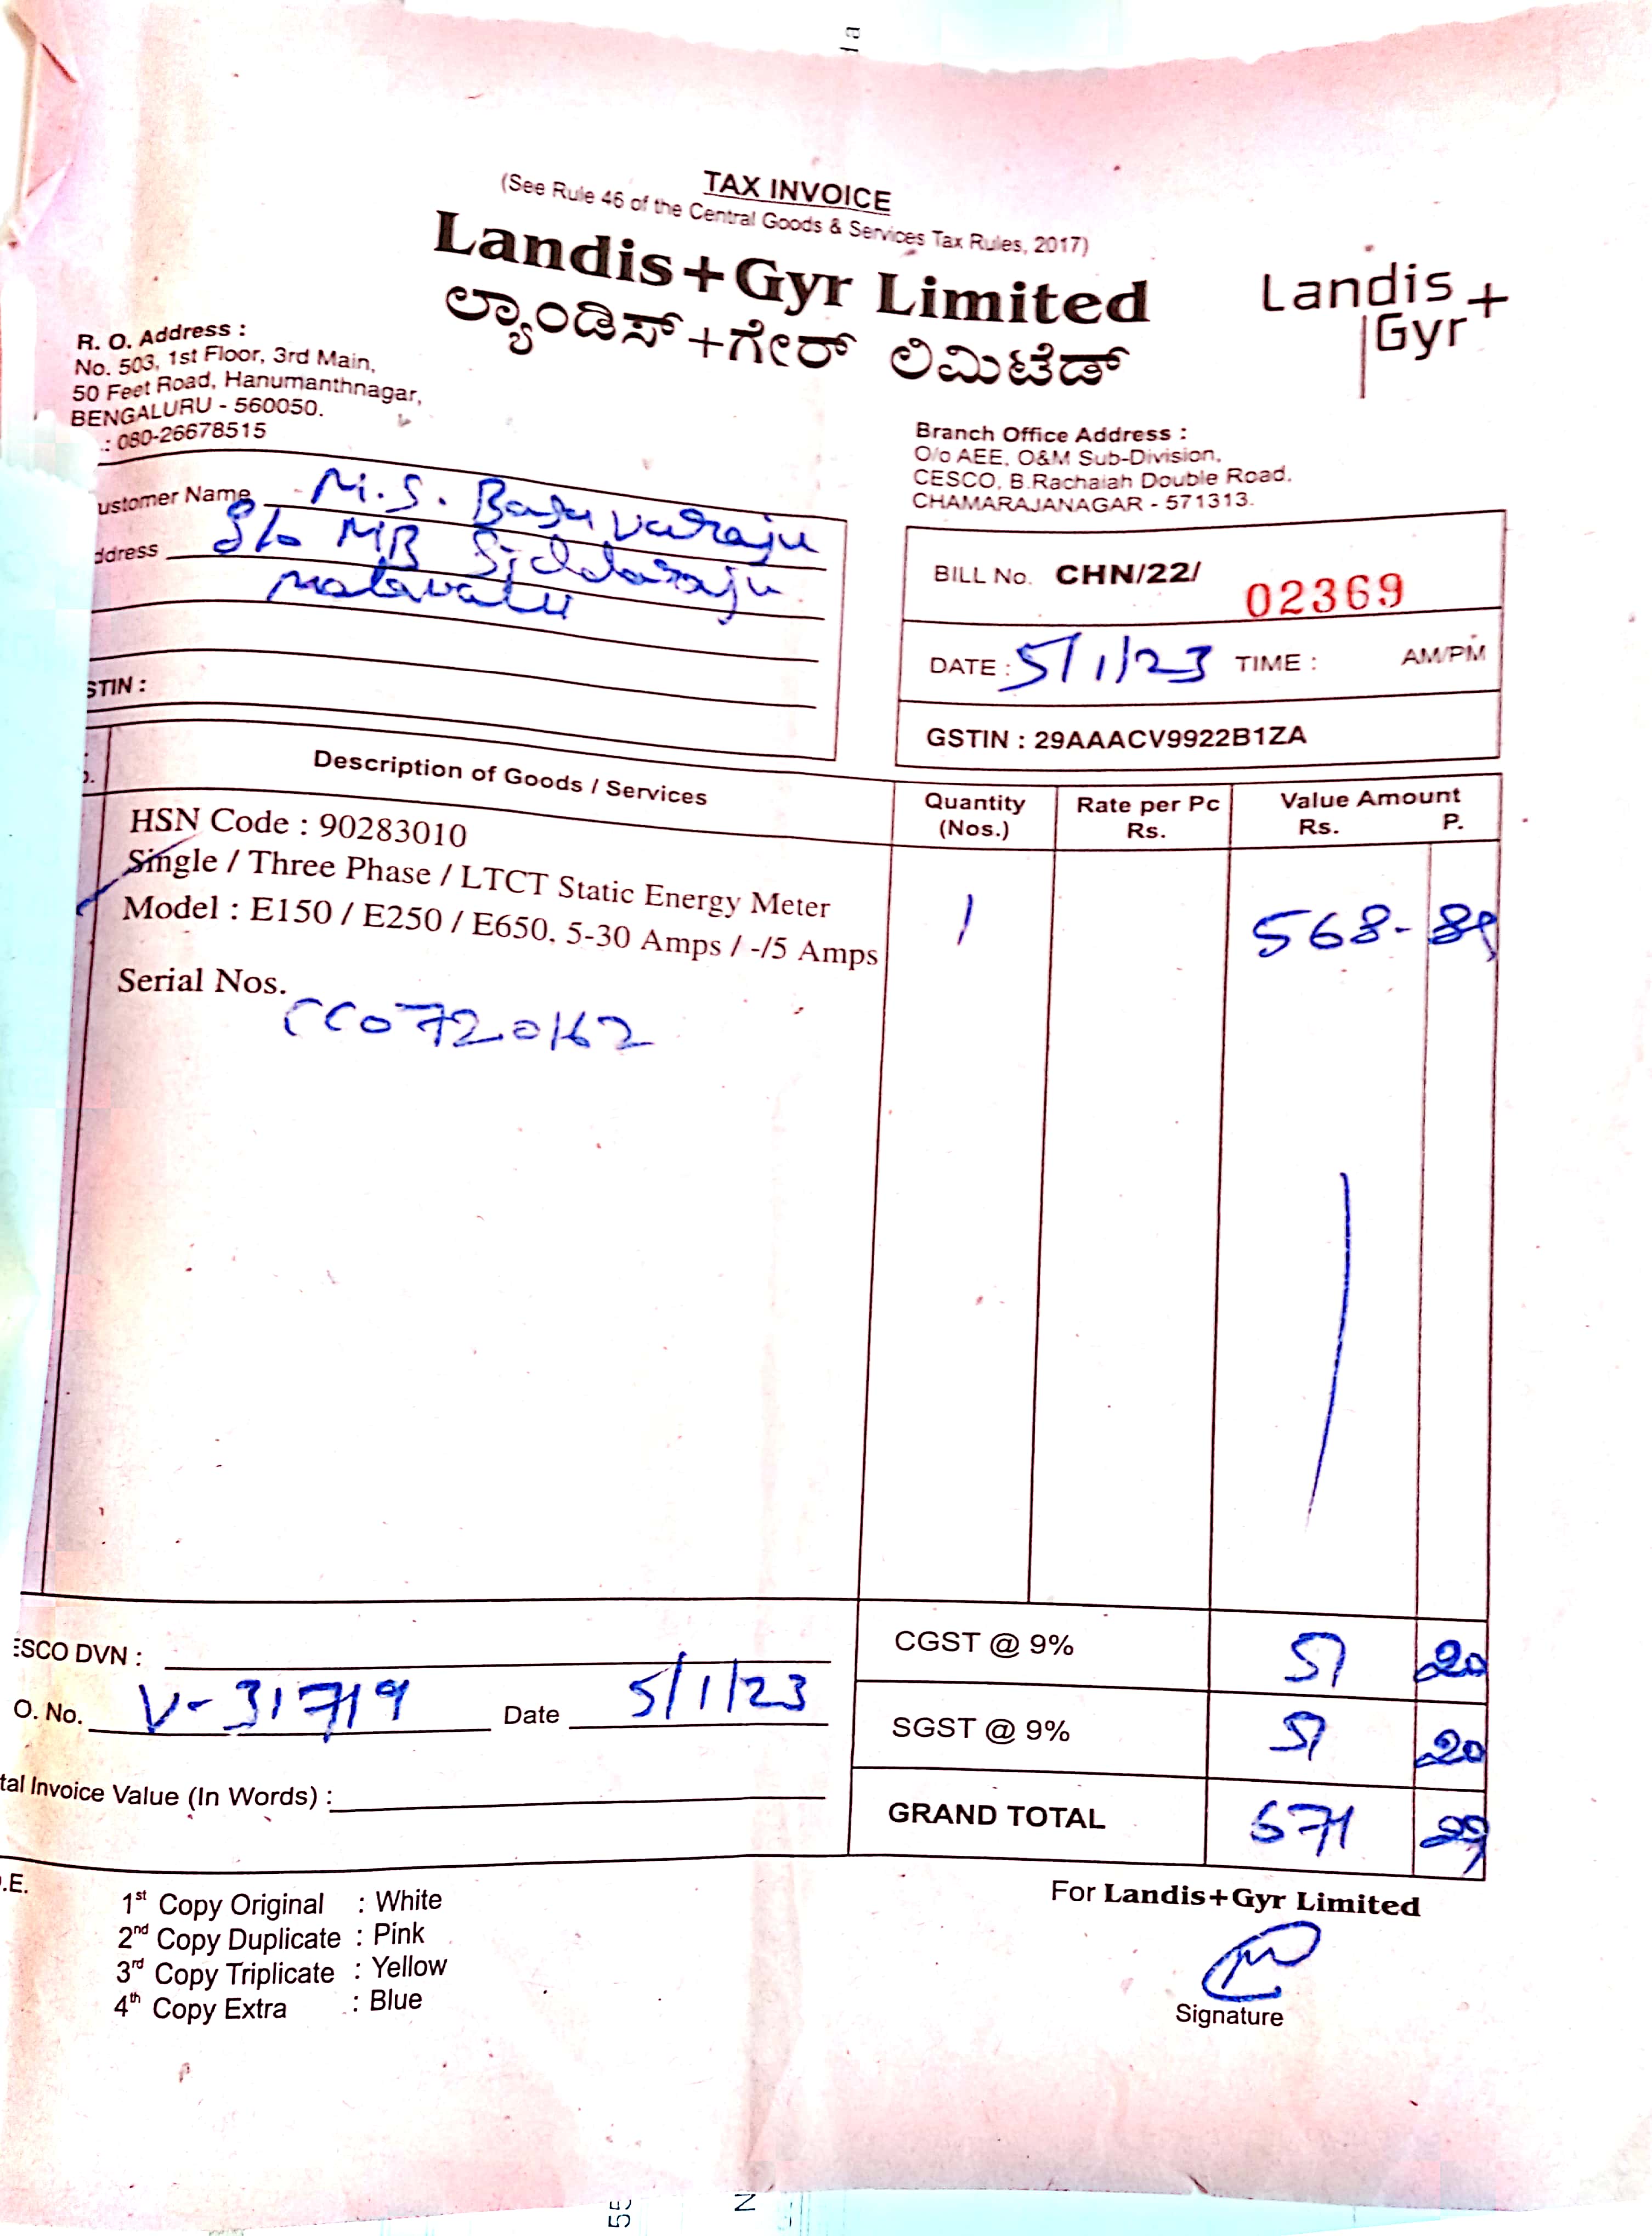 TAX INVOICE
(See Rule 46 of the Central Goods & Services Tax Rules, 2017)
Landis+Gyr Limited
ಲ್ಯಾಂಡಿಸ್+ಗೇರ್ ಲಿಮಿಟೆಡ್
Landis+
Gyr
R. O. Address :
No. 503, 1st Floor, 3rd Main,
50 Feet Road, Hanumanthnagar,
BENGALURU - 560050.
.: 080-26678515
Branch Office Address :
O/o AEE, O&M Sub-Division,
CESCO, B.Rachaiah Double Road,
CHAMARAJANAGAR - 571313.
ustomer Name M.S. Basavaraju
ddress S/o MB Siddaraju
STIN :
BILL No. CHN/22/ 02369
DATE : 5/1/23 TIME : AM/PM
GSTIN : 29AAACV9922B1ZA
Description of Goods / Services Quantity (Nos.) Rate per Pc Rs. Value Amount Rs. P.
HSN Code : 90283010
Single / Three Phase / LTCT Static Energy Meter
Model : E150 / E250 / E650, 5-30 Amps / -/5 Amps 1 568-89
Serial Nos.
CC0720162
ESCO DVN :
O. No. V-31719 Date 5/1/23
tal Invoice Value (In Words) :
CGST @ 9% 51 20
SGST @ 9% 51 20
GRAND TOTAL 671 29
.E.
1st Copy Original : White
2nd Copy Duplicate : Pink
3rd Copy Triplicate : Yellow
4th Copy Extra : Blue
For Landis+Gyr Limited
Signature